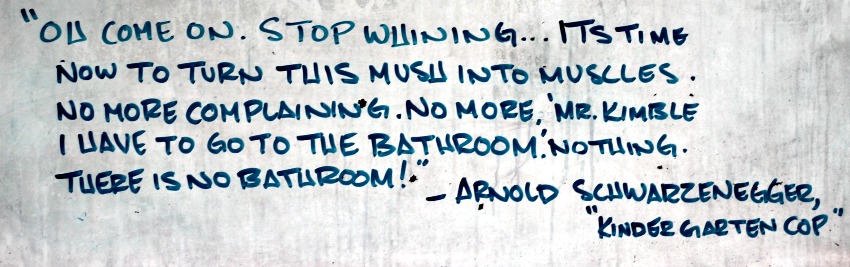 "OH COME ON. STOP WHINING... ITS TIME
NOW TO TURN THIS MUSH INTO MUSCLES.
NO MORE COMPLAINING. NO MORE, 'MR. KIMBLE
I HAVE TO GO TO THE BATHROOM.' NOTHING.
THERE IS NO BATHROOM!"
- ARNOLD SCHWARZENEGGER,
"KINDERGARTEN COP"